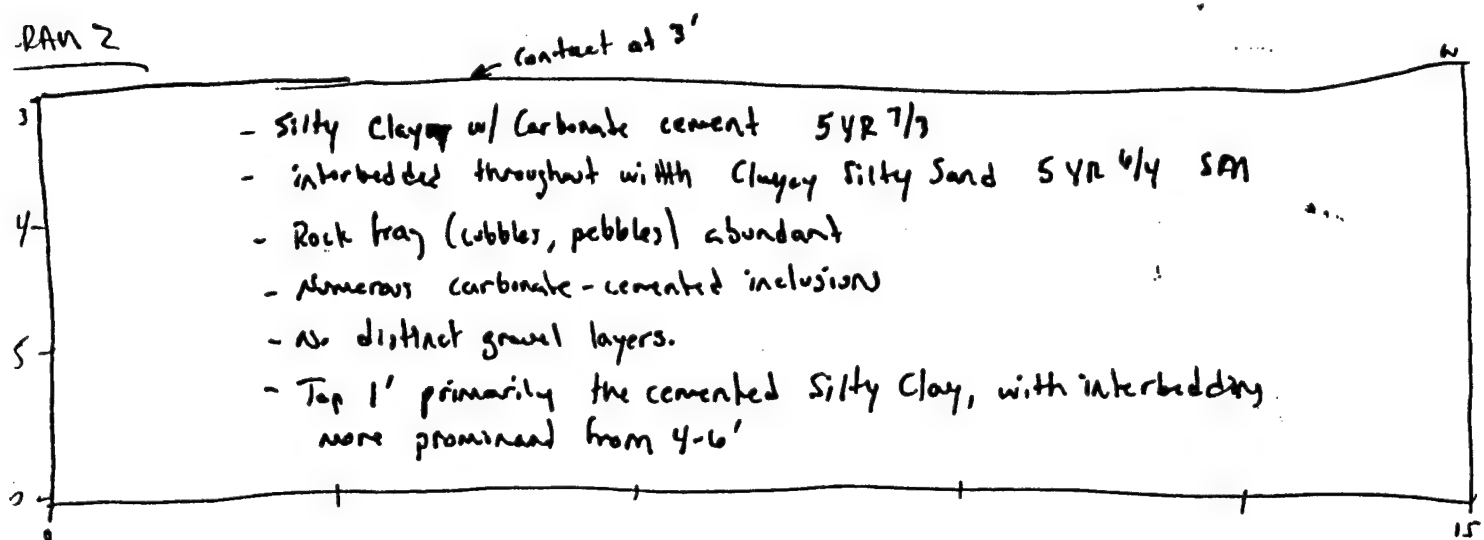 RAN 2
contact at 3'
W
3
- Silty Clay w/ Carbonate cement 5 YR 7/3
- interbedded throughout with Clayey Silty Sand 5 YR 6/4 SM
4
- Rock frag (cobbles, pebbles) abundant
- Numerous carbonate-cemented inclusions
- No distinct gravel layers.
5
- Top 1' primarily the cemented Silty Clay, with interbedding
more prominand from 4-6'
0
15